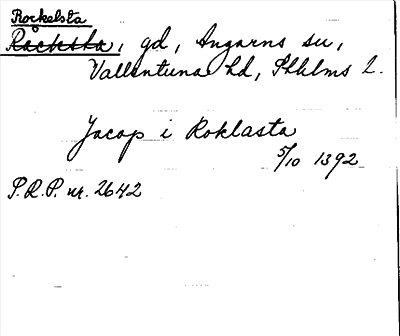 Rockelsta
Råcksta, gd, Angarns sn,
Vallentuna hd, Sthlms L.
Jacop i Roklasta
5/10 1392
P.R.P. nr. 2642